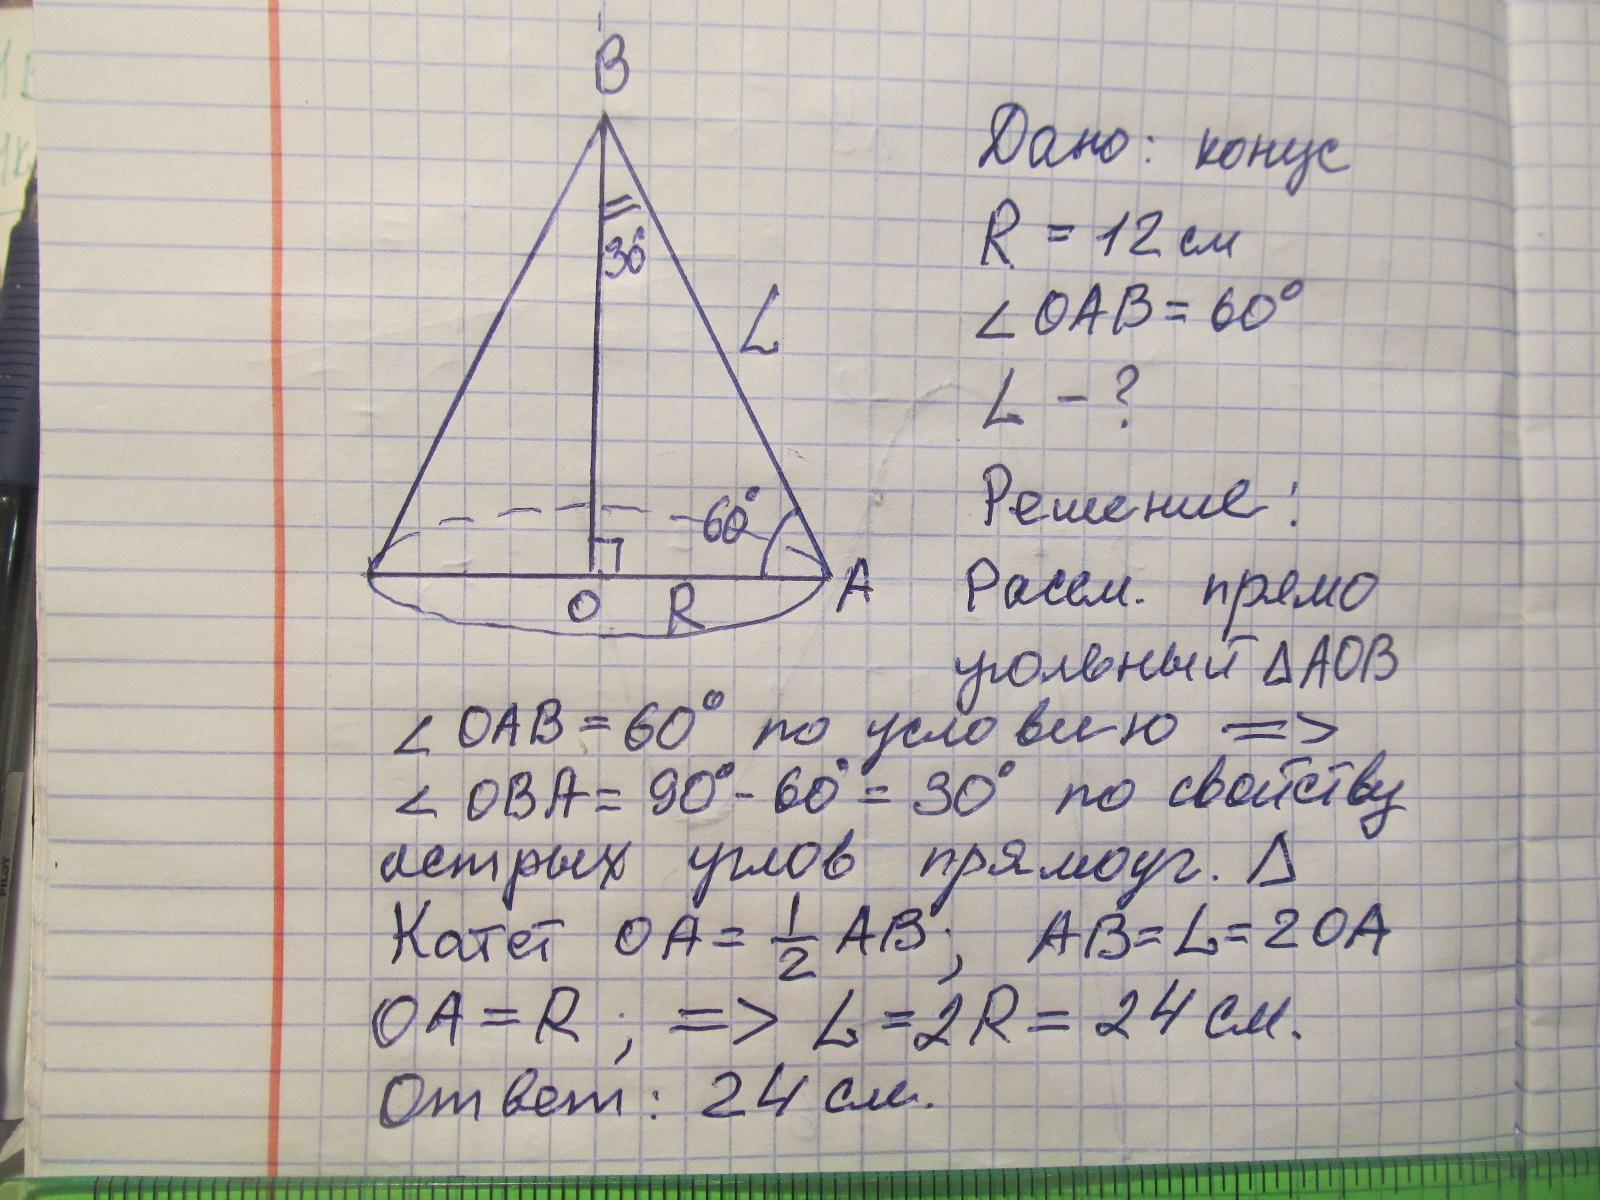 B
30°
L
60°
O
R
A
Дано: конус
R = 12 см
∠ OAB = 60°
L - ?
Решение:
Рассм. прямо
угольный Δ AOB
∠ OAB = 60° по условию =>
∠ OBA = 90° - 60° = 30° по свойству
острых углов прямоуг. Δ
Катет OA = 1/2 AB; AB = L = 2OA
OA = R; => L = 2R = 24 см.
Ответ: 24 см.